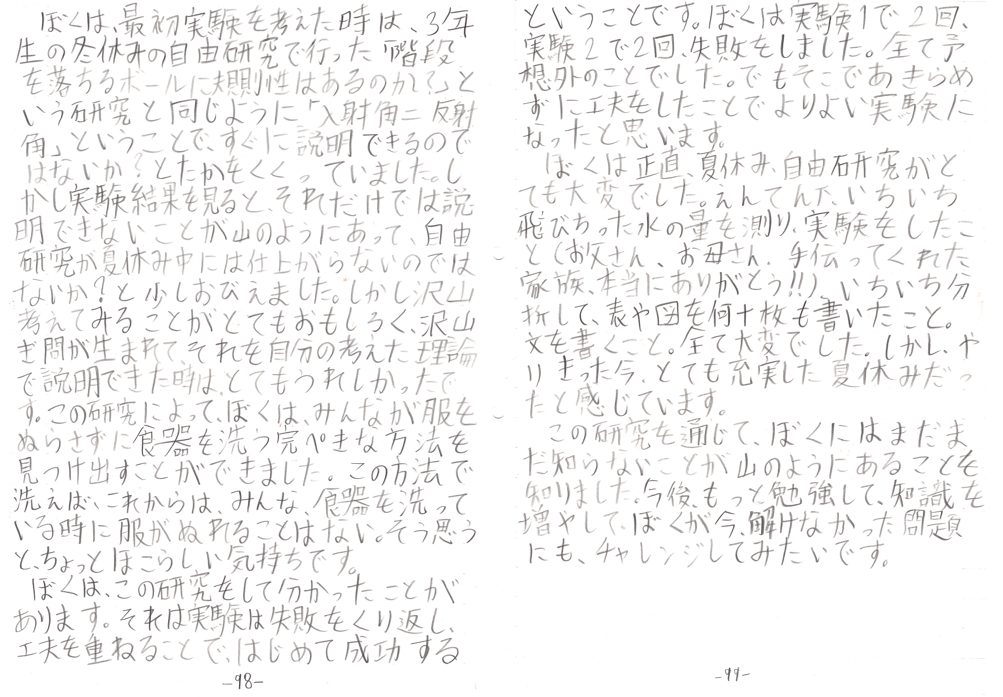 ぼくは、最初実験を考えた時は、3年
生の冬休みの自由研究で行った「階段
を落ちるボールに規則性はあるのか?」と
いう研究と同じように「入射角=反射
角」ということで、すぐに説明できるので
はないか?とたかをくくっていました。し
かし実験結果を見ると、それだけでは説
明できないことが山のようにあって、自由
研究が夏休み中には仕上がらないのでは
ないか?と少しおびえました。しかし沢山
考えてみることがとてもおもしろく、沢山
ぎ問が生まれて、それを自分の考えた理論
で説明できた時は、とてもうれしかったで
す。この研究によって、ぼくは、みんなが服を
ぬらさずに食器を洗う完ぺきな方法を
見つけ出すことができました。この方法で
洗えば、これからは、みんな、食器を洗って
いる時に服がぬれることはない。そう思う
と、ちょっとほこらしい気持ちです。
ぼくは、この研究をして分かったことが
あります。それは実験は失敗をくり返し、
工夫を重ねることで、はじめて成功する
-98-
ということです。ぼくは実験1で2回、
実験2で2回、失敗をしました。全て予
想外のことでした。でもそこであきらめ
ずに工夫をしたことでよりよい実験に
なったと思います。
ぼくは正直、夏休み、自由研究がと
ても大変でした。えんてん下、いちいち
飛びちった水の量を測り、実験をしたこ
と(お父さん、お母さん、手伝ってくれた
家族、本当にありがとう!!)、いちいち分
析して、表や図を何十枚も書いたこと。
文を書くこと。全て大変でした。しかし、や
りきった今、とても充実した夏休みだっ
たと感じています。
この研究を通じて、ぼくにはまだま
だ知らないことが山のようにあることを
知りました。今後、もっと勉強して、知識を
増やして、ぼくが今、解けなかった問題
にも、チャレンジしてみたいです。
-99-